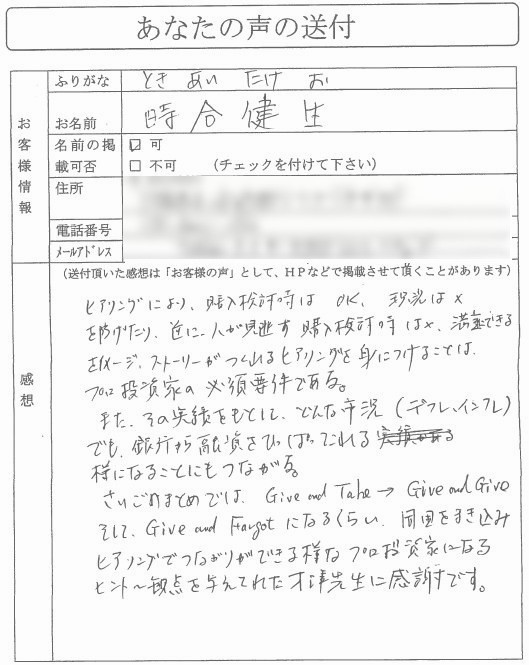 あなたの声の送付
お客様情報
ふりがな とき あい たけ お
お名前 時合健生
名前の掲載可否 ☑ 可
□ 不可 (チェックを付けて下さい)
住所
電話番号
メールアドレス
感想
(送付頂いた感想は「お客様の声」として、HPなどで掲載させて頂くことがあります)
ヒアリングにより、購入検討時は OK、現況は×
を防げたり、逆に、人が見逃す 購入検討時は×、満室できる
をイメージ、ストーリーがつくれるヒアリングを身につけることは、
プロ投資家の必須要件である。
また、その実績をもとにして、どんな市況(デフレ、インフレ)
でも、銀行から融資をひっぱってこれる
様になることにもつながる。
さいごのまとめでは、Give and Take → Give and Give
そして、Give and Forgot になるくらい、周囲をまき込み
ヒアリングでつながりができる様な プロ投資家になる
ヒント〜観点を与えてくれた 先生に感謝です。